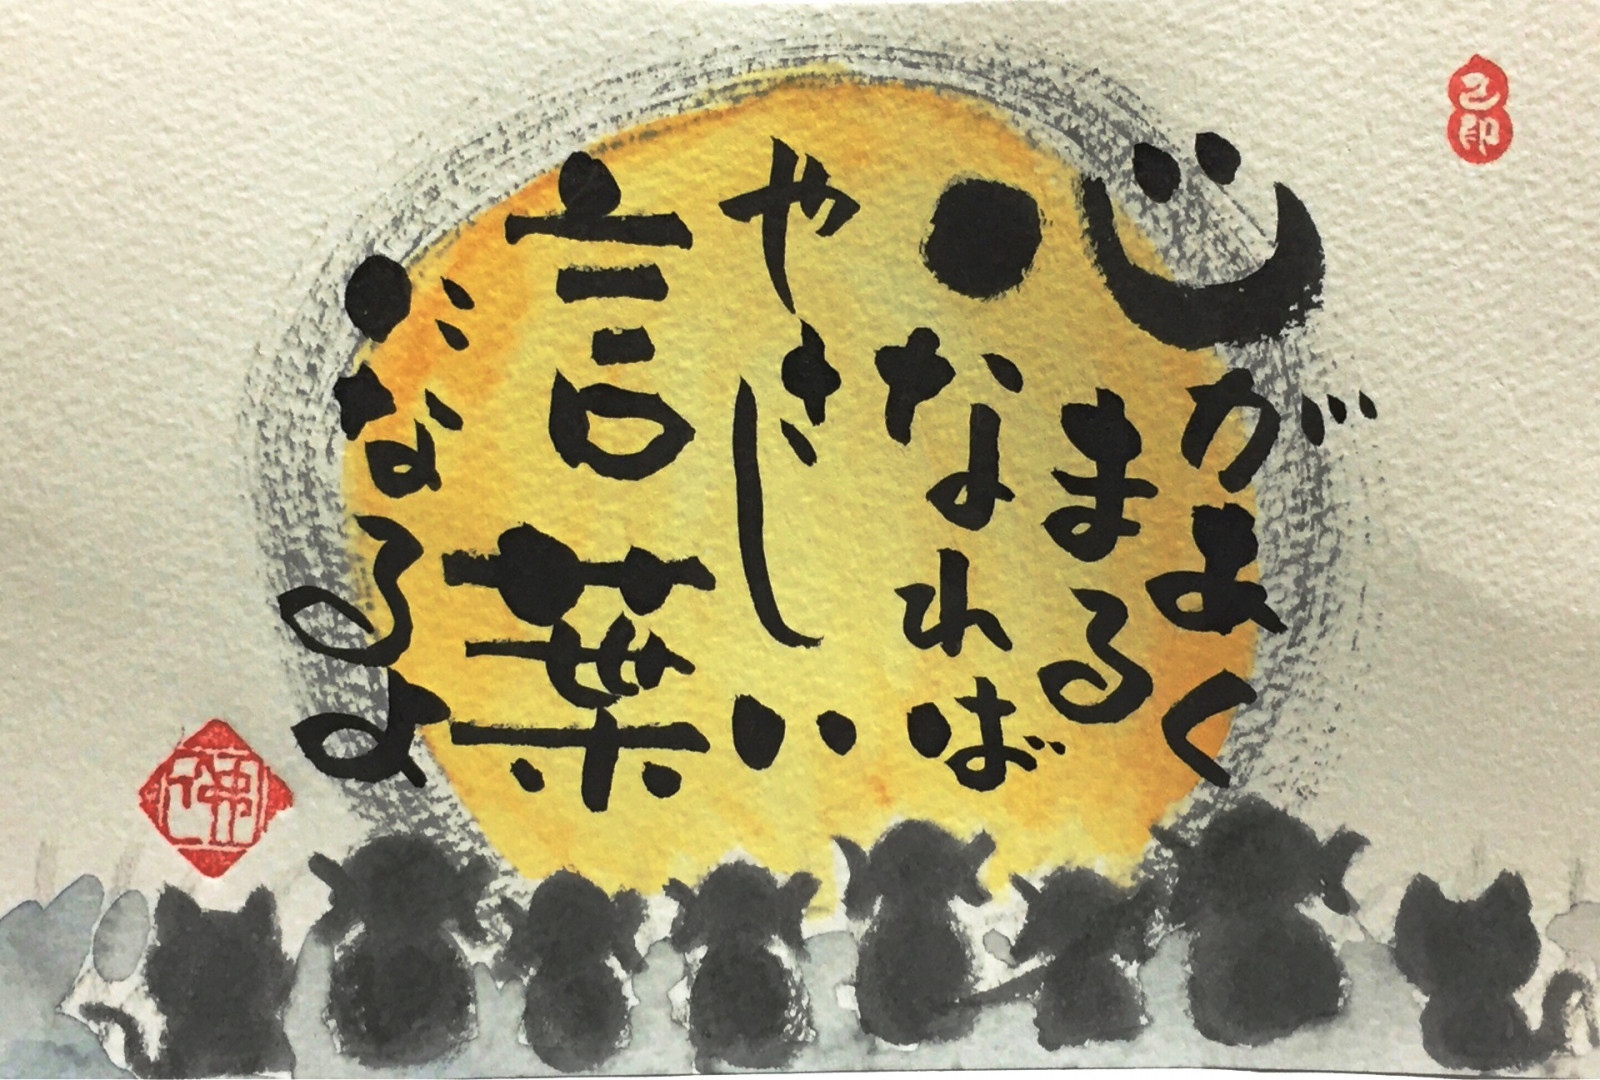 心が
まあるく
●なれば
やさしい
言葉
になるよ